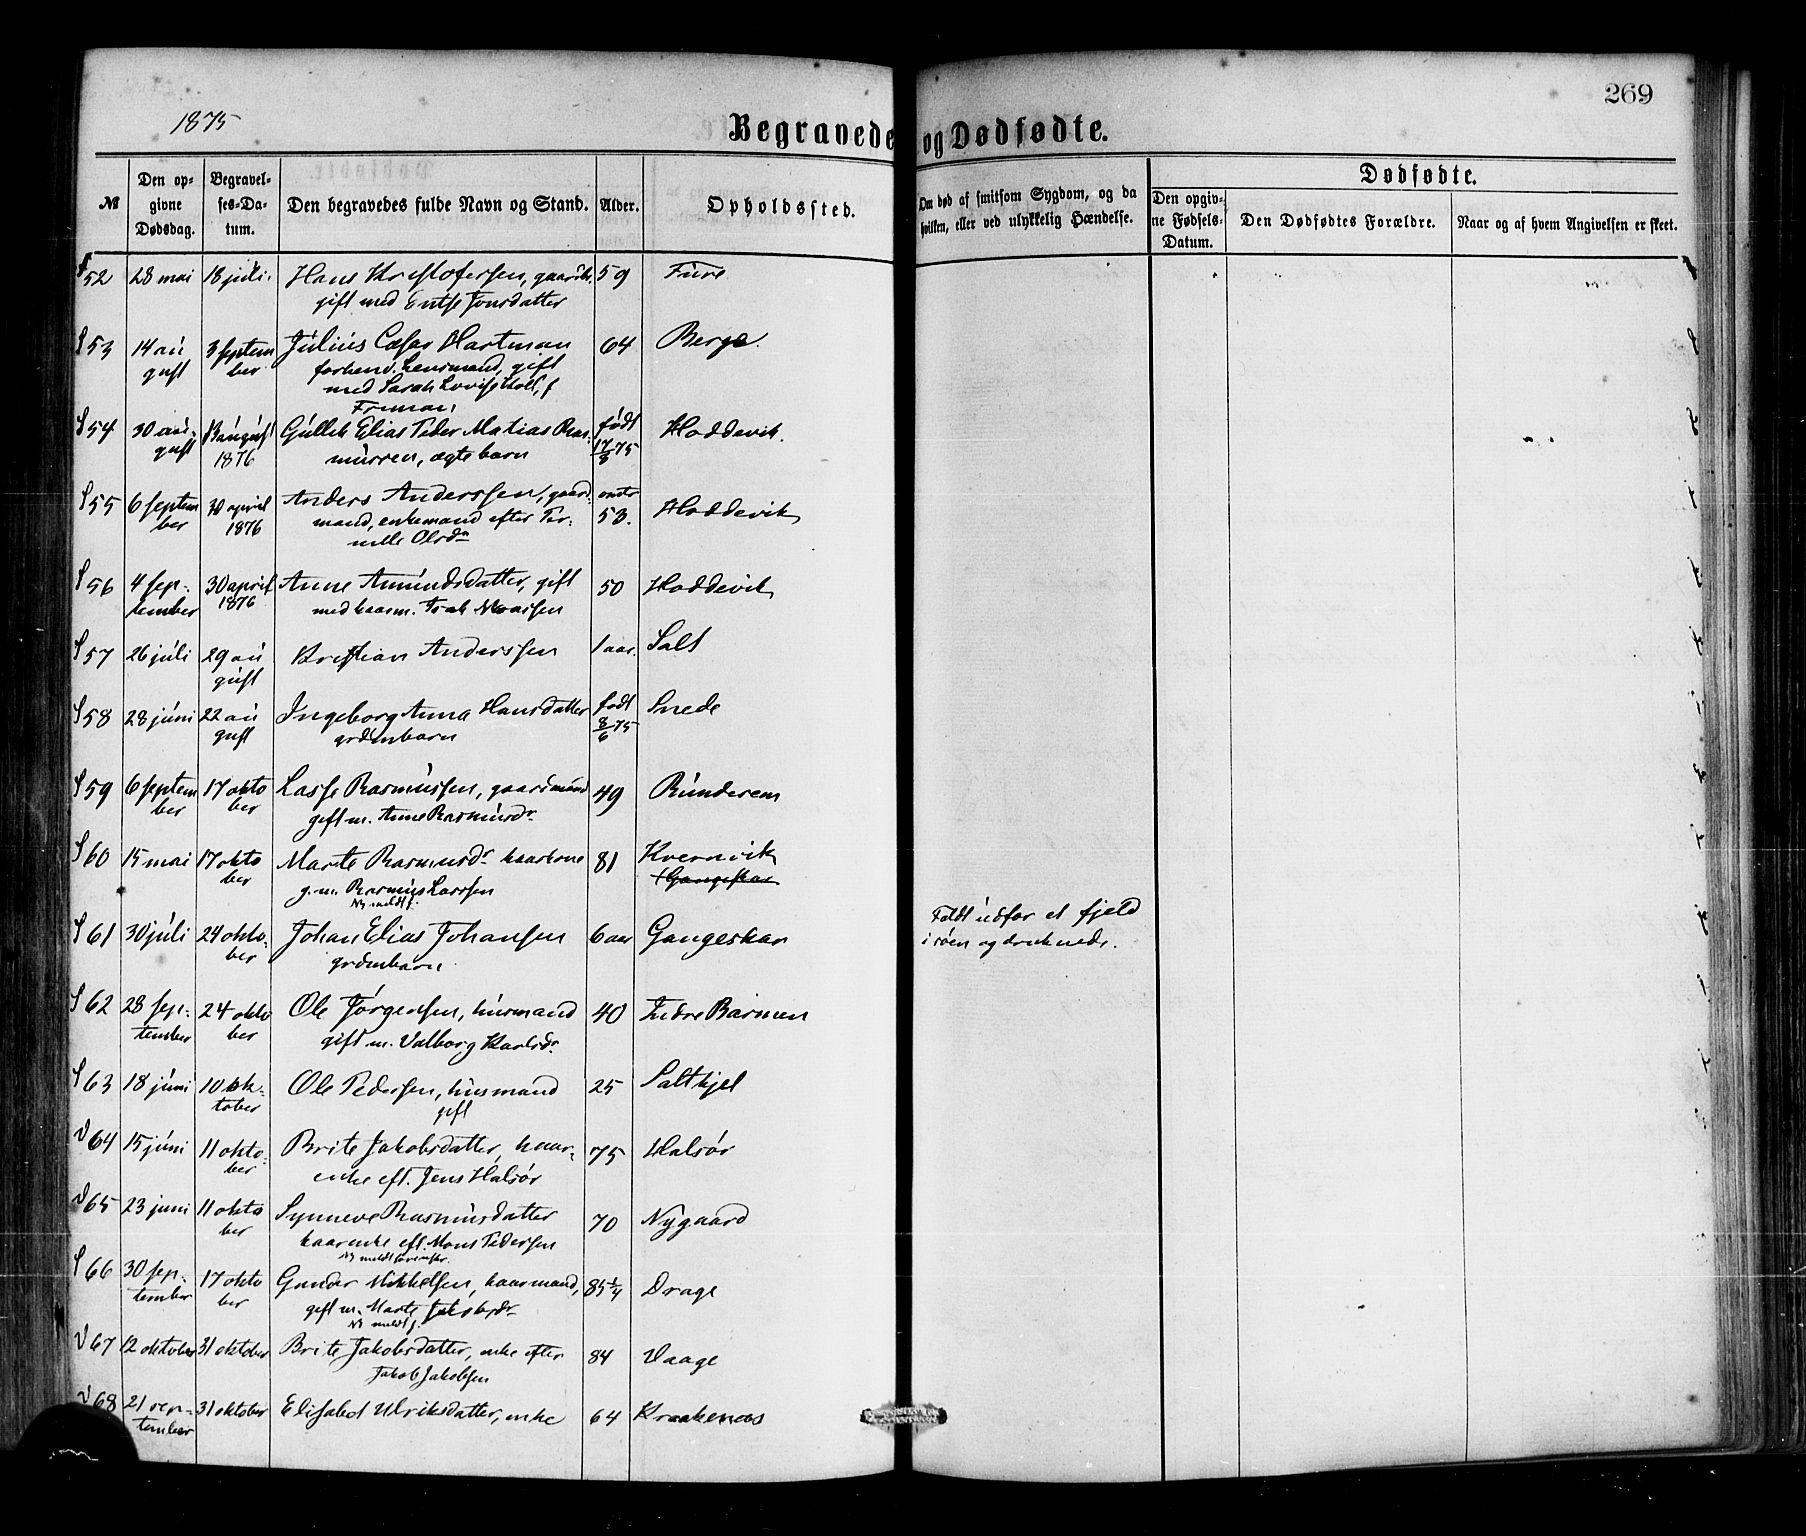 269
1875
Begravede og Dødfødte.
№
Den opgivne Dødsdag.
Begravelses-Datum.
Den begravedes fulde Navn og Stand.
Alder.
Opholdssted.
Om død af smitsom Sygdom, og da hvilken, eller ved ulykkelig Hændelse.
Dødfødte.
Den opgivne Fødsels-Datum.
Den Dødfødtes Forældre.
Naar og af hvem Angivelsen er skeet.
52 28 mai 18 juli. Hans Kristofersen, gaardb. 59 Fure
gift med Jonsdatter
S 53 14 august 3 september Júliús Cæsar Hartman 64 Berge
forhenv. Lensmand, gift
med Sarah Lovise
S 54 30 august august 1876 Gúllik Elias Peder Matias Rasmússen, ægte barn født 17/8 75 Hoddevik.
S 55 6 september 30 april 1876 Anders Anderssen, gaardmand, enkemand efter Pernille Olsdn omtr 53. Hoddevik
S 56 4 september 30 april 1876 Anne Amúndsdatter, gift 50 Hoddevik
med kaarm. Isak Moassen
S 57 26 júli 29 august Kristian Anderssen 1 aar. Salt
S 58 28 júni 22 august Ingeborg Anna Hansdatter født 8/6 75 Snede
grdmbarn
S 59 6 september 17 oktober Lasse Rasmússen, gaardmand 49 Rúnderem
gift m. Anne Rasmúsdr
S 60 15 mai 17 oktober Marite Rasmusdr kaarkone 81 Kvernvik
g.m. Rasmús Larssen Gangeskar
S 61 30 júli 24 oktober Johan Elias Johansen 6 aar Gangeskar Faldt údfor et fjeld
grdmbarn i søen og druknede.
S 62 28 september 24 oktober Ole Jørgensen, húsmand 40 Indre Barmen
gift m. Valborg Karlsdr
S 63 18 júni 10 oktober Ole Pedersen, húsmand 25 Saltkjel
gift
V 64 15 júni 11 oktober Brite Jakobsdatter, kaarenke eft. Jens Halsør 75 Halsør
V 65 23 juni 11 oktober Synneve Rasmúsdatter 70 Nygaard
kaarenke eft. Mons Pedersen
S 66 30 september 17 oktober Gunder Mikkelsen, kaarmand, 85 1/4 Drage
gift m. Marte Jakobsdr
V 67 12 oktober 31 oktober Brite Jakobsdatter, enke efter 84 Vaage
Jakob Jakobsen
V 68 21 september 31 oktober Elisabet Ulriksdatter, enke 64 Kraakenæs